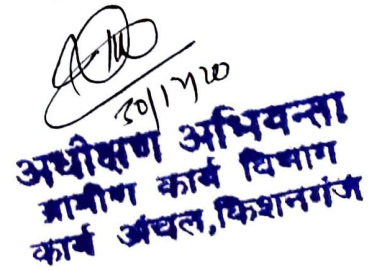 30/12/20
अधीक्षण अभियन्ता
ग्रामीण कार्य विभाग
कार्य अंचल, किशनगंज